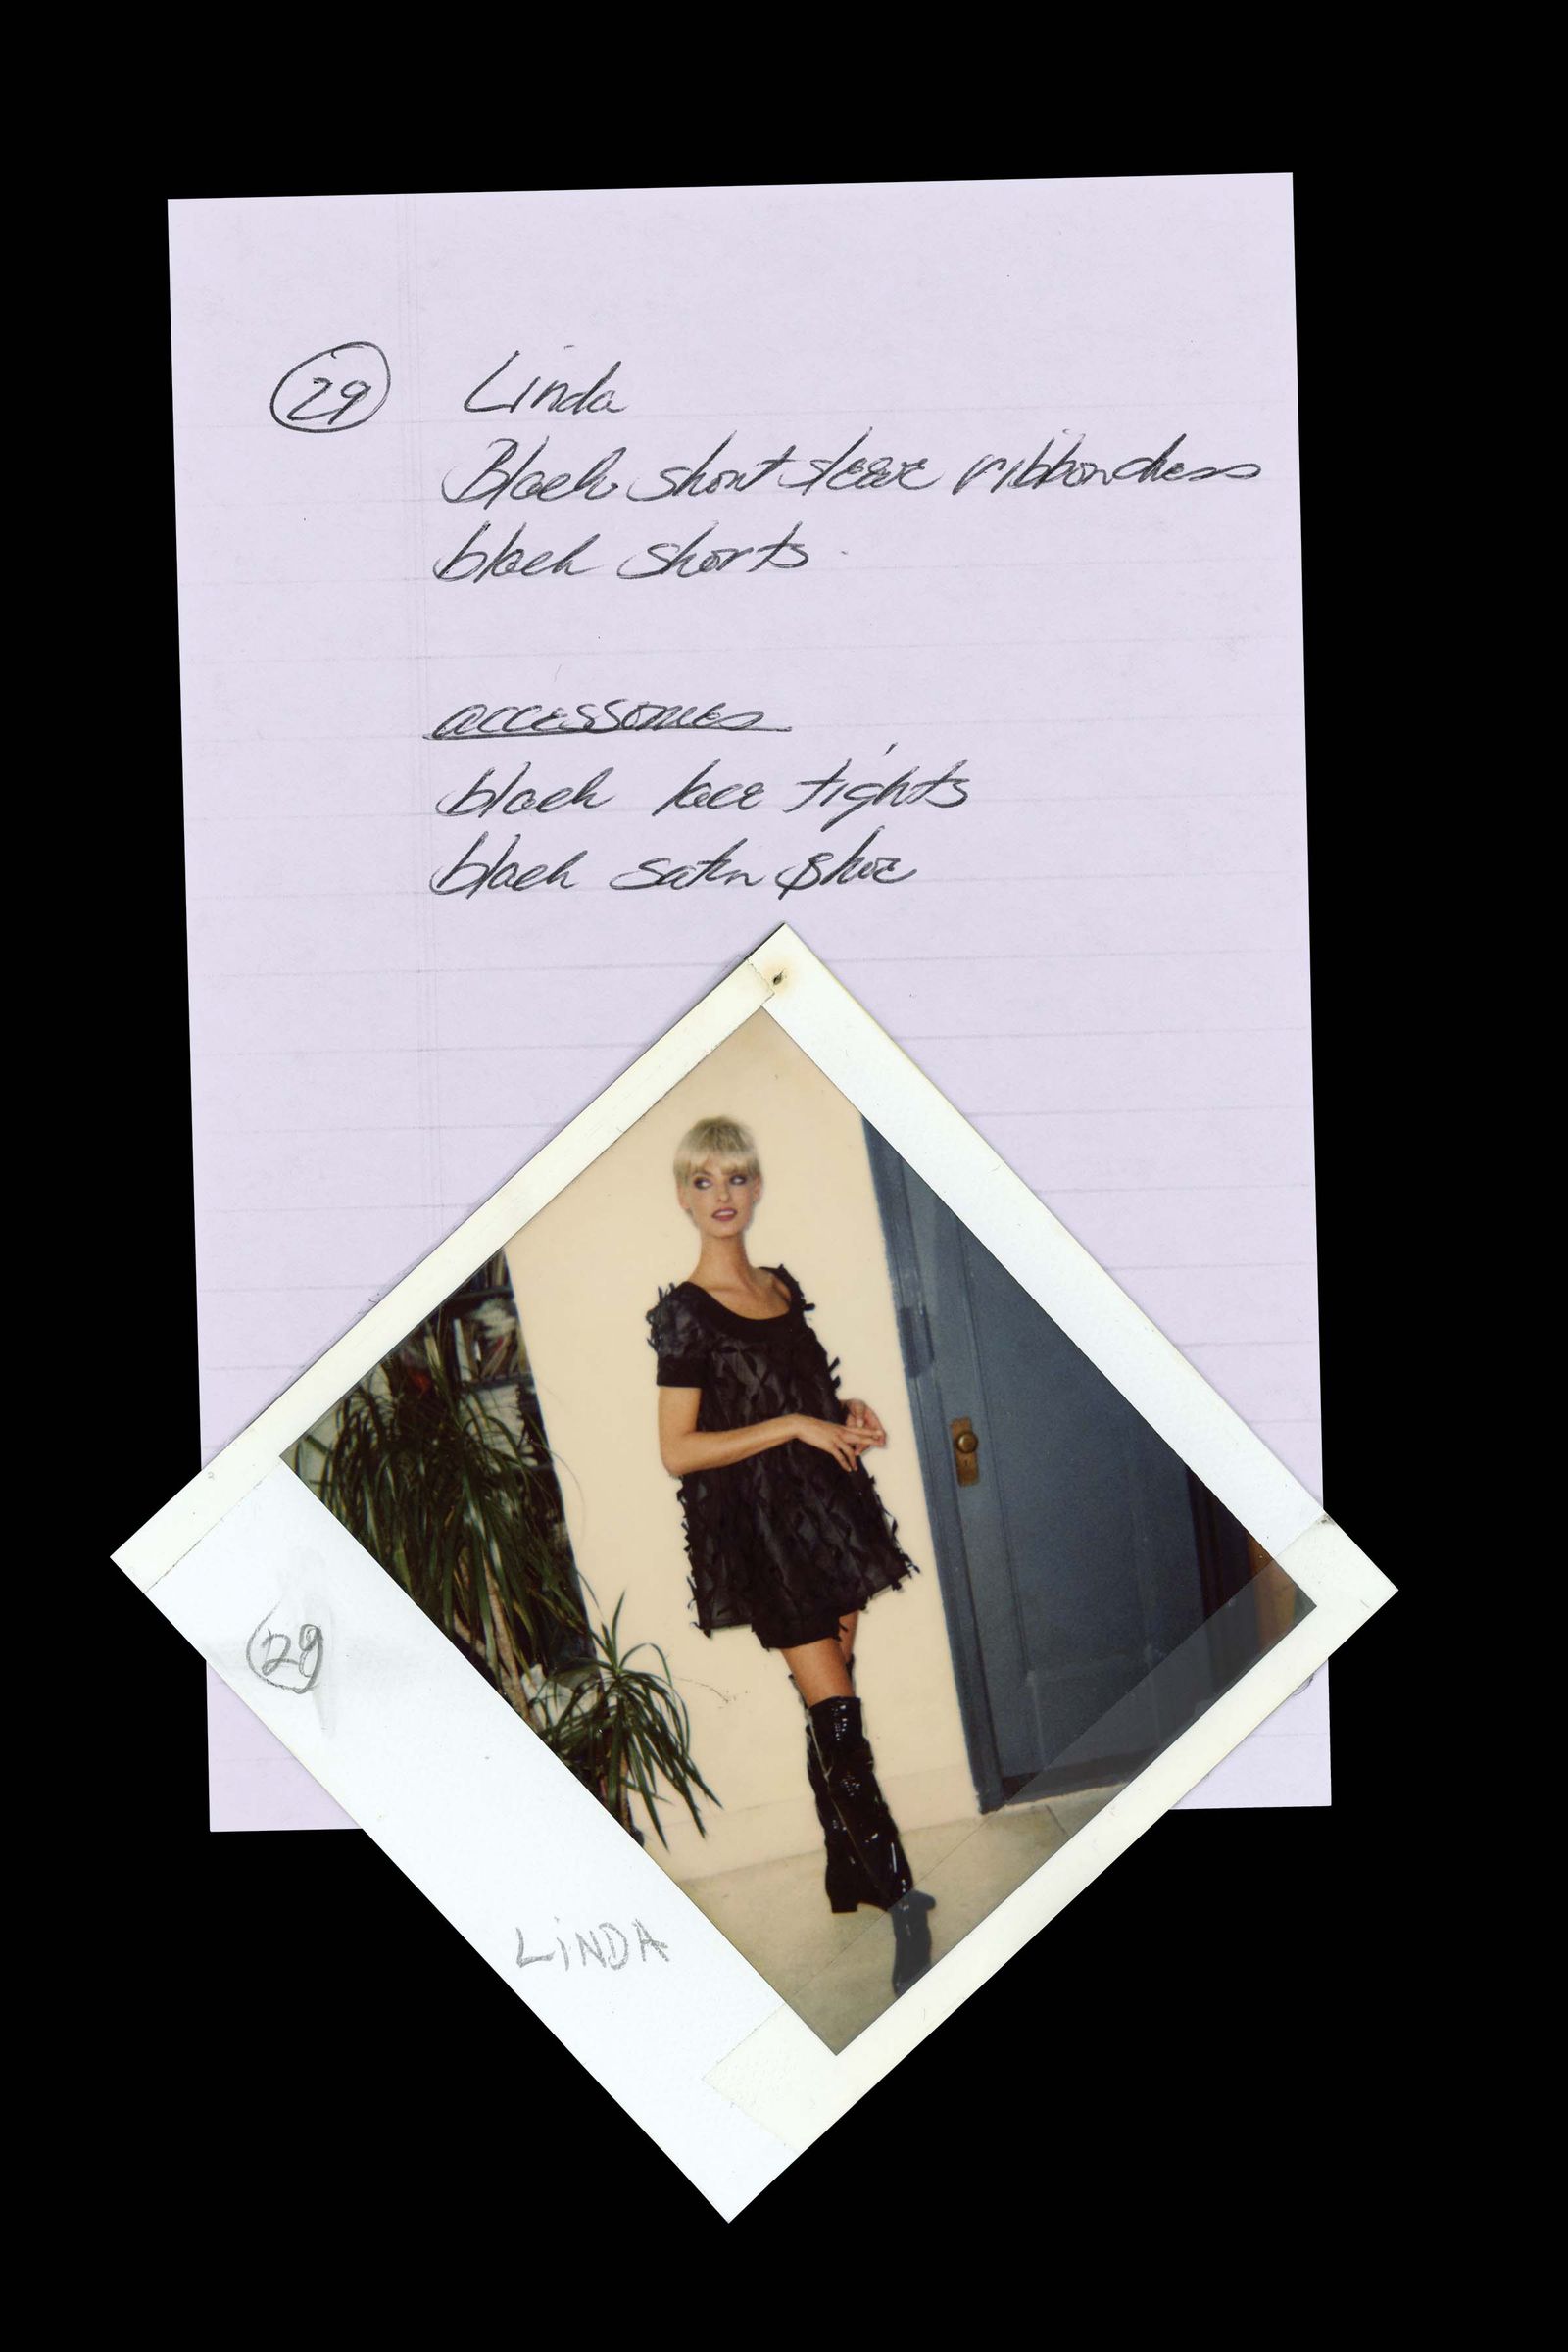 29 Linda
Black short sleeve ribbon dress
black shorts
accessories
black lace tights
black satin shoe
29
LiNDA